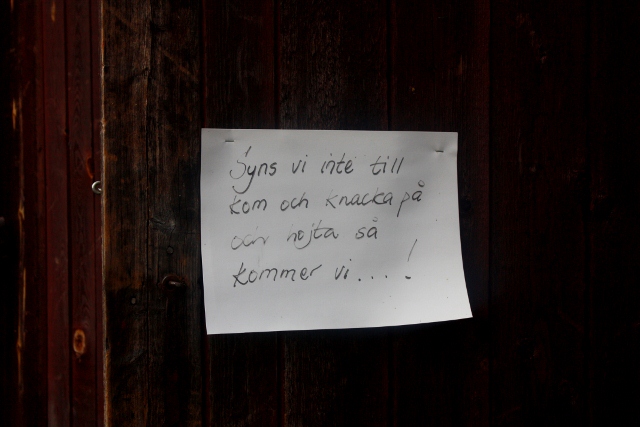 Syns vi inte till
kom och knacka på
och hojta så
kommer vi....!